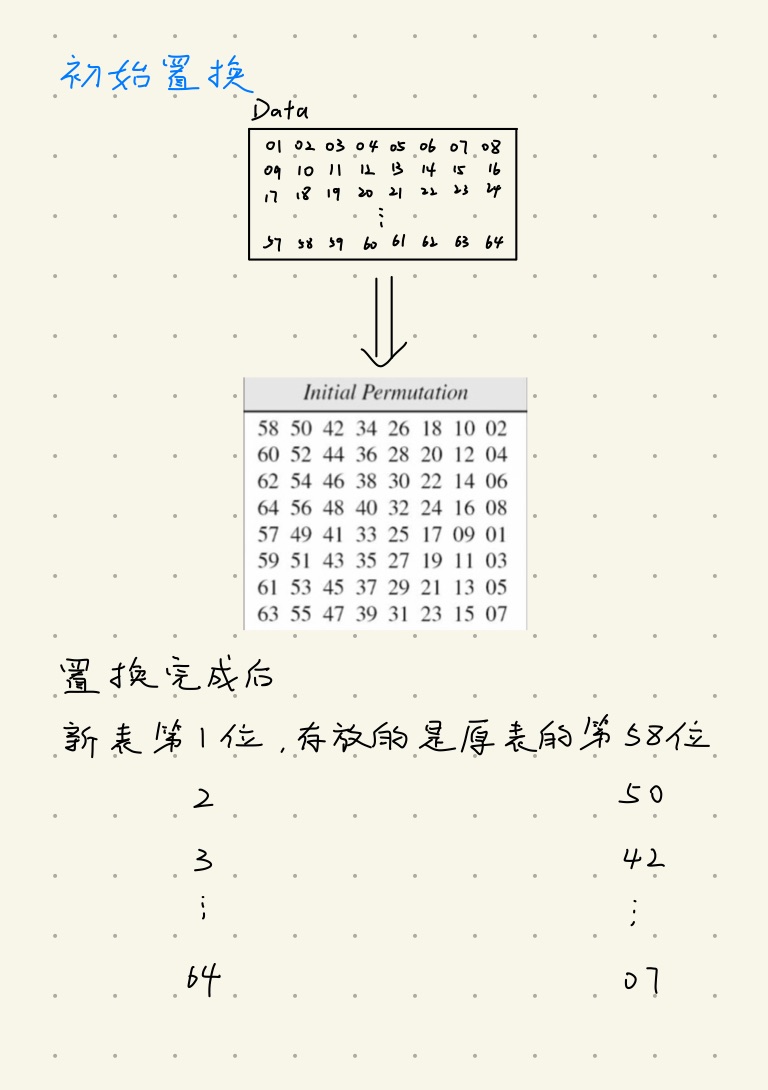 初始置换
Data
01 02 03 04 05 06 07 08
09 10 11 12 13 14 15 16
17 18 19 20 21 22 23 24
⋮
57 58 59 60 61 62 63 64
Initial Permutation
58 50 42 34 26 18 10 02
60 52 44 36 28 20 12 04
62 54 46 38 30 22 14 06
64 56 48 40 32 24 16 08
57 49 41 33 25 17 09 01
59 51 43 35 27 19 11 03
61 53 45 37 29 21 13 05
63 55 47 39 31 23 15 07
置换完成后
新表第1位,存放的是原表的第58位
2 50
3 42
⋮ ⋮
64 07